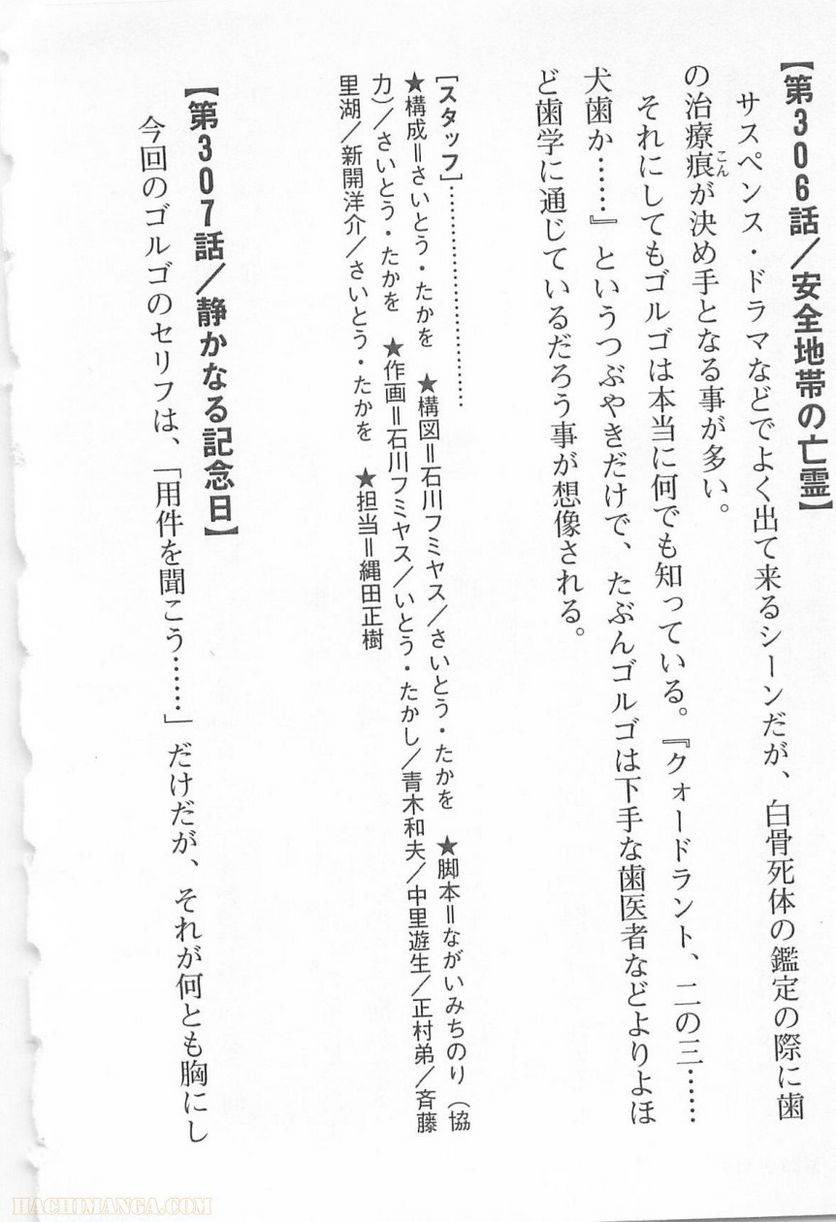 【第306話／安全地帯の亡霊】
サスペンス・ドラマなどでよく出て来るシーンだが、白骨死体の鑑定の際に歯
の治療痕が決め手となる事が多い。
こん
それにしてもゴルゴは本当に何でも知っている。『クォードラント、二の三……
犬歯か……』というつぶやきだけで、たぶんゴルゴは下手な歯医者などよりよほ
ど歯学に通じているだろう事が想像される。
[スタッフ]……………………………
★構成＝さいとう・たかを　★構図＝石川フミヤス／さいとう・たかを　★脚本＝ながいみちのり（協
力）／さいとう・たかを　★作画＝石川フミヤス／いとう・たかし／青木和夫／中里遊生／正村弟／斉藤
里湖／新開洋介／さいとう・たかを　★担当＝縄田正樹
【第307話／静かなる記念日】
今回のゴルゴのセリフは、「用件を聞こう……」だけだが、それが何とも胸にし
HACHIMANGA.COM